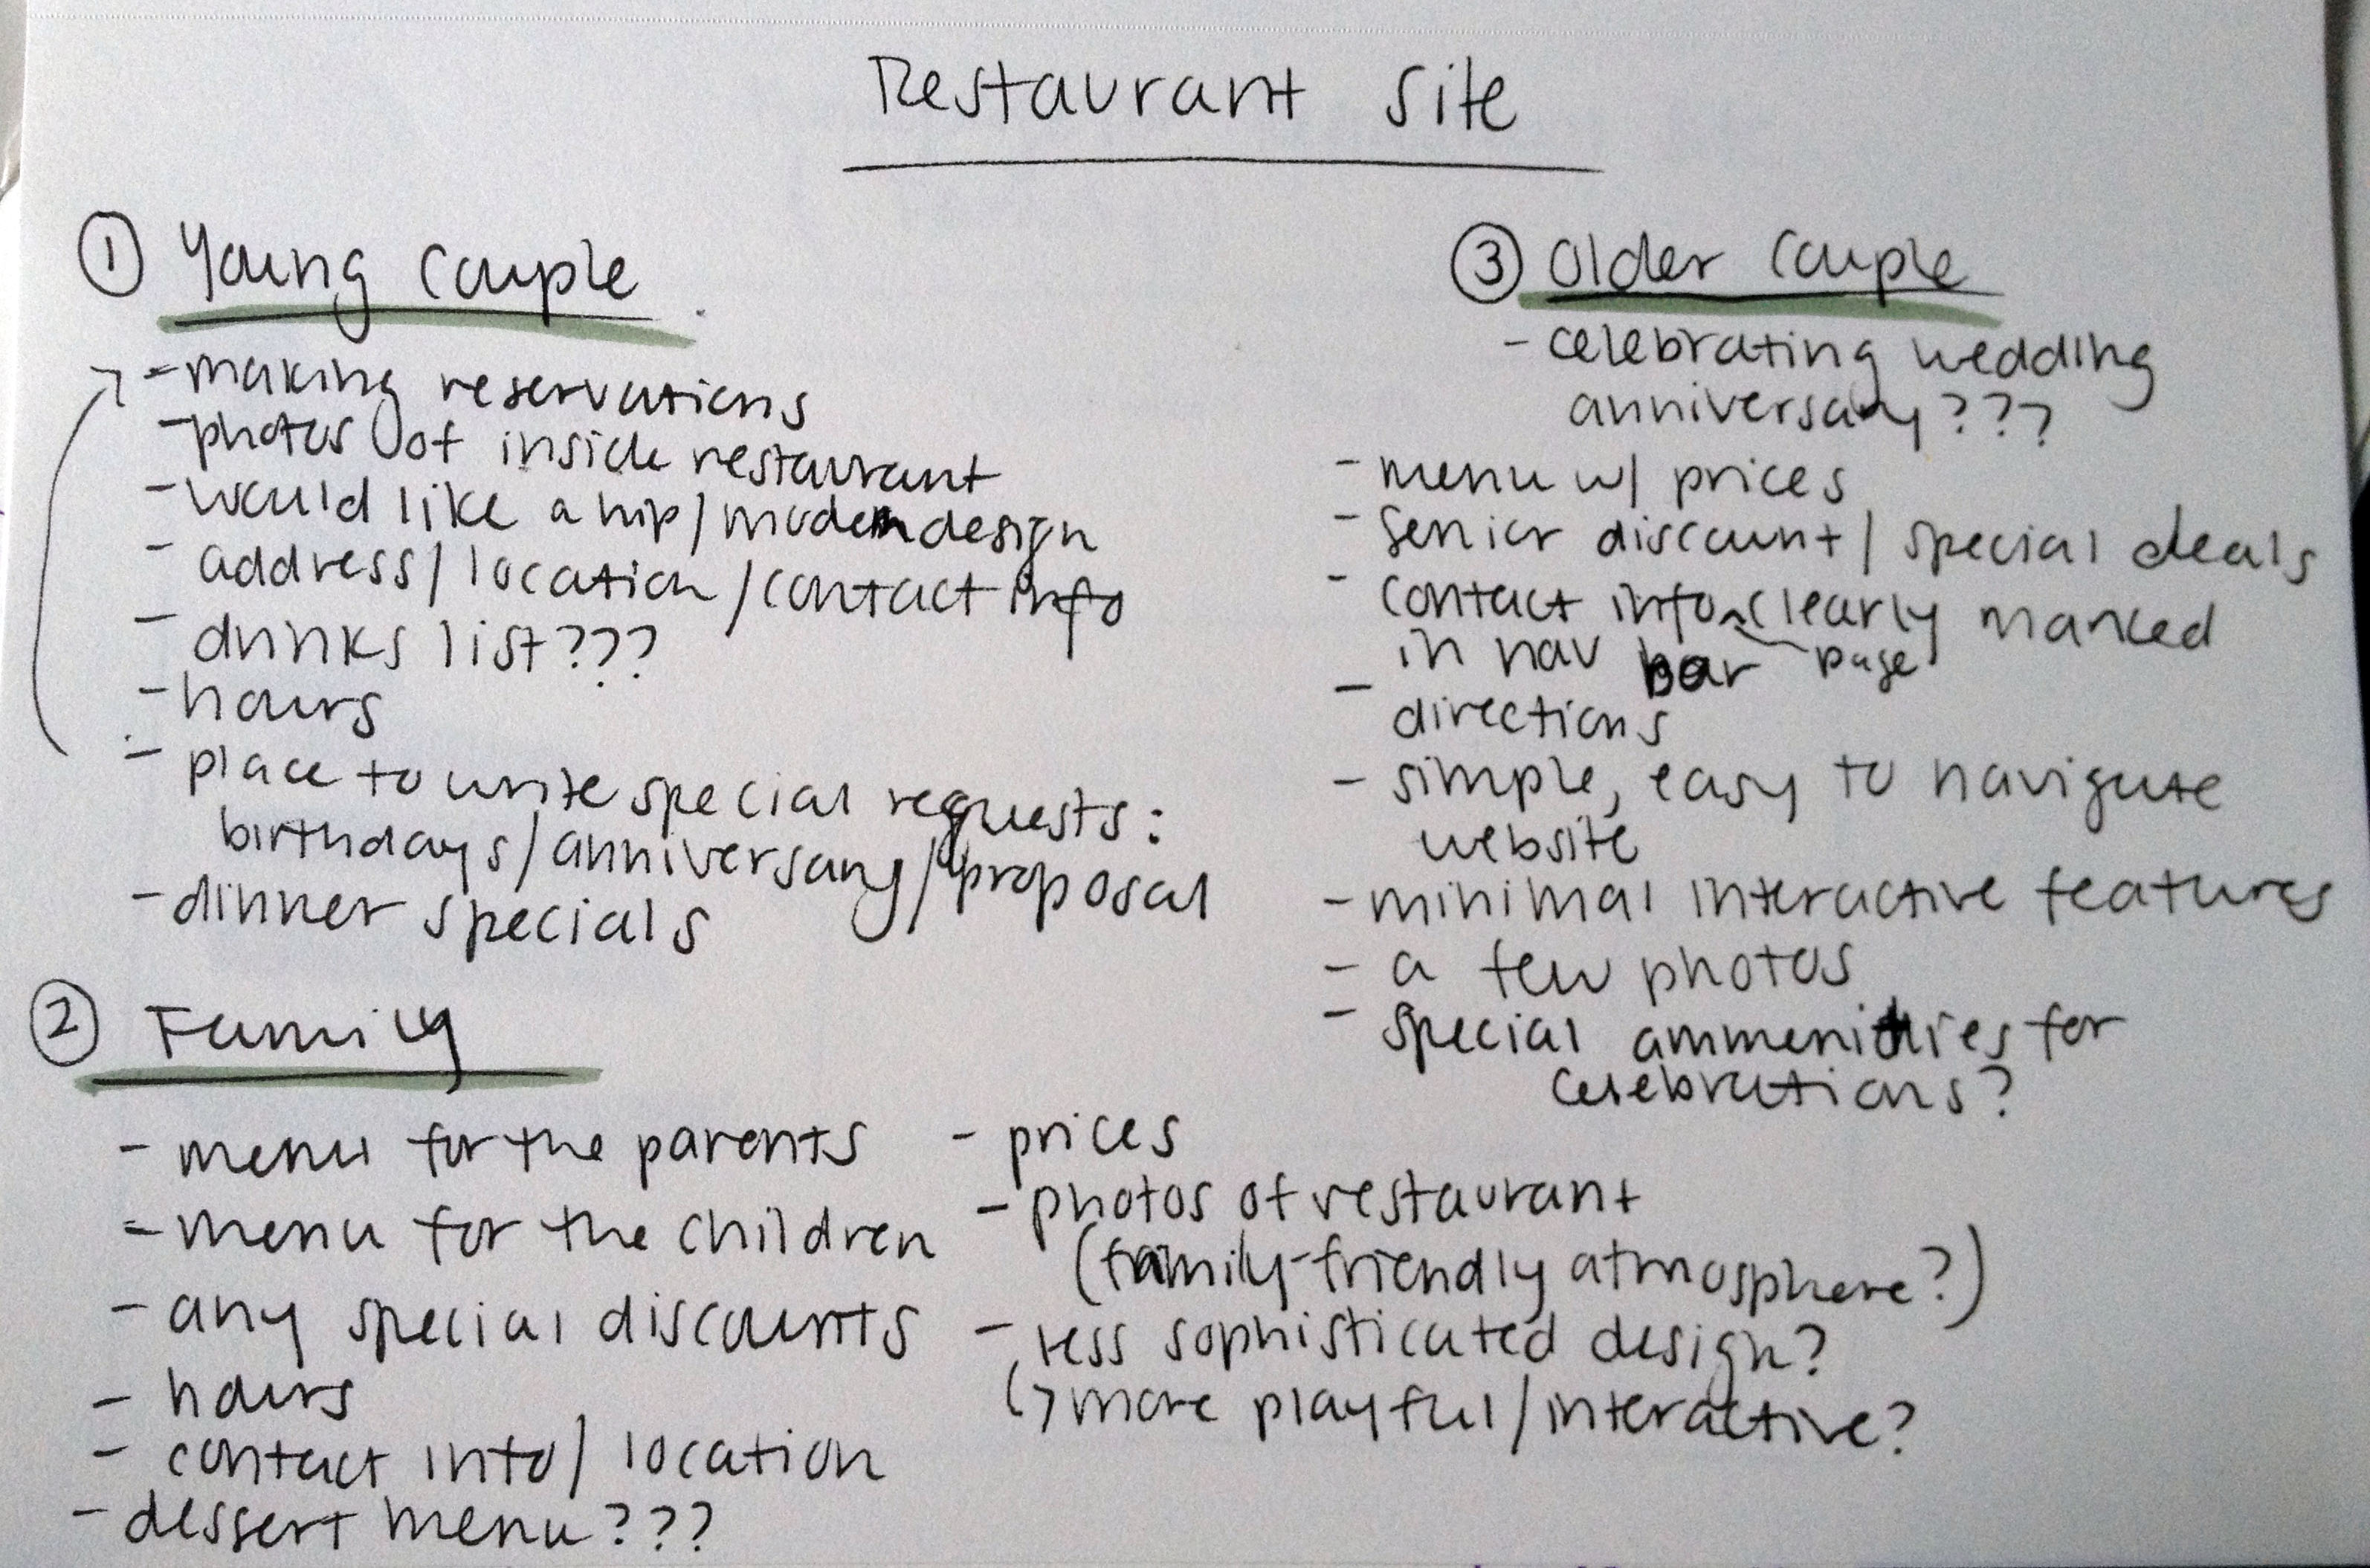 Restaurant Site
① Young Couple
- making reservations
- photos of inside restaurant
- would like a hip/modern design
- address/location/contact info
- drinks list???
- hours
- place to write special requests:
birthdays/anniversary/proposal
- dinner specials
② Family
- menu for the parents
- menu for the children
- any special discounts
- hours
- contact info/location
- dessert menu???
- prices
- photos of restaurant
(family-friendly atmosphere?)
- less sophisticated design?
↳ more playful/interactive?
③ Older Couple
- celebrating wedding
anniversary???
- menu w/ prices
- senior discount/special deals
- contact info clearly marked
page
in nav bar
- directions
- simple, easy to navigate
website
- minimal interactive features
- a few photos
- special ammenities for
celebrations?